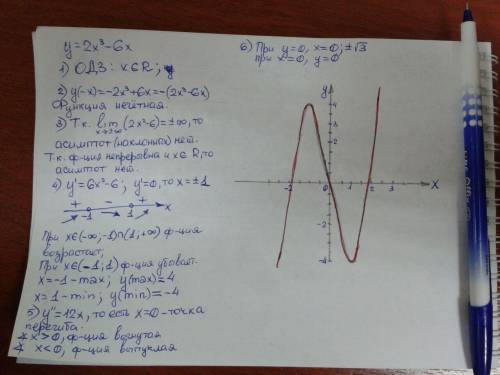 y=2x³-6x
1) ОДЗ: x∈R;
2) y(-x)=-2x³+6x=-(2x³-6x)
Функция нечётная.
3) Т.к. lim x→±∞ (2x²-6)=±∞, то
асимптот (наклонных) нет.
Т.к. ф-ция непрерывна и x∈R, то
асимптот нет.
4) y'=6x²-6; y'=0, то x=±1
+ - +
-1 1 x
При x∈(-∞;-1)∩(1,+∞) ф-ция
возрастает;
При x∈(-1;1) ф-ция убывает.
x=-1-max; y(max)=4
x=1-min; y(min)=-4
5) y''=12x, то есть x=0-точка
перегиба.
x>0, ф-ция вогнутая
x<0, ф-ция выпуклая
6) При y=0, x=0; ±√3
при x=0, y=0
y
4
2
-2
2
X
-2
-4